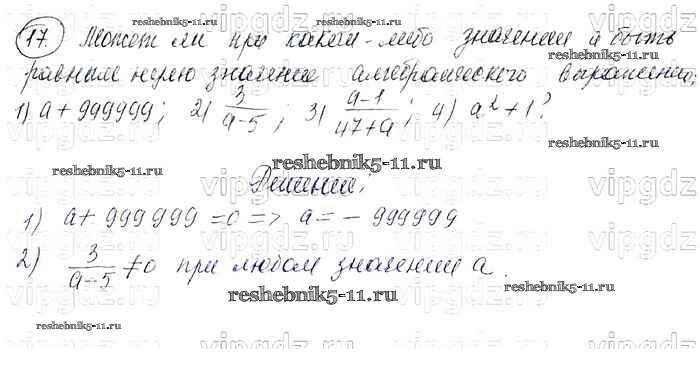 reshebnik5-11.ru
17. Может ли при каком-либо значении a быть
равным нулю значение алгебраического выражения:
1) a + 999999; 2) 3/(a-5); 3) (a-1)/(47+a); 4) a²+1?
reshebnik5-11.ru
reshebnik5-11.ru
reshebnik5-11.ru
reshebnik5-11.ru
Решение:
vipgdz vipgdz vipgdz vipgdz
1) a + 999 999 = 0 => a = - 999999
2) 3/(a-5) ≠ 0 при любом значении a.
vipgdz vipgdz vipgdz vipgdz
reshebnik5-11.ru
reshebnik5-11.ru
reshebnik5-11.ru
vipgdz vipgdz vipgdz vipgdz